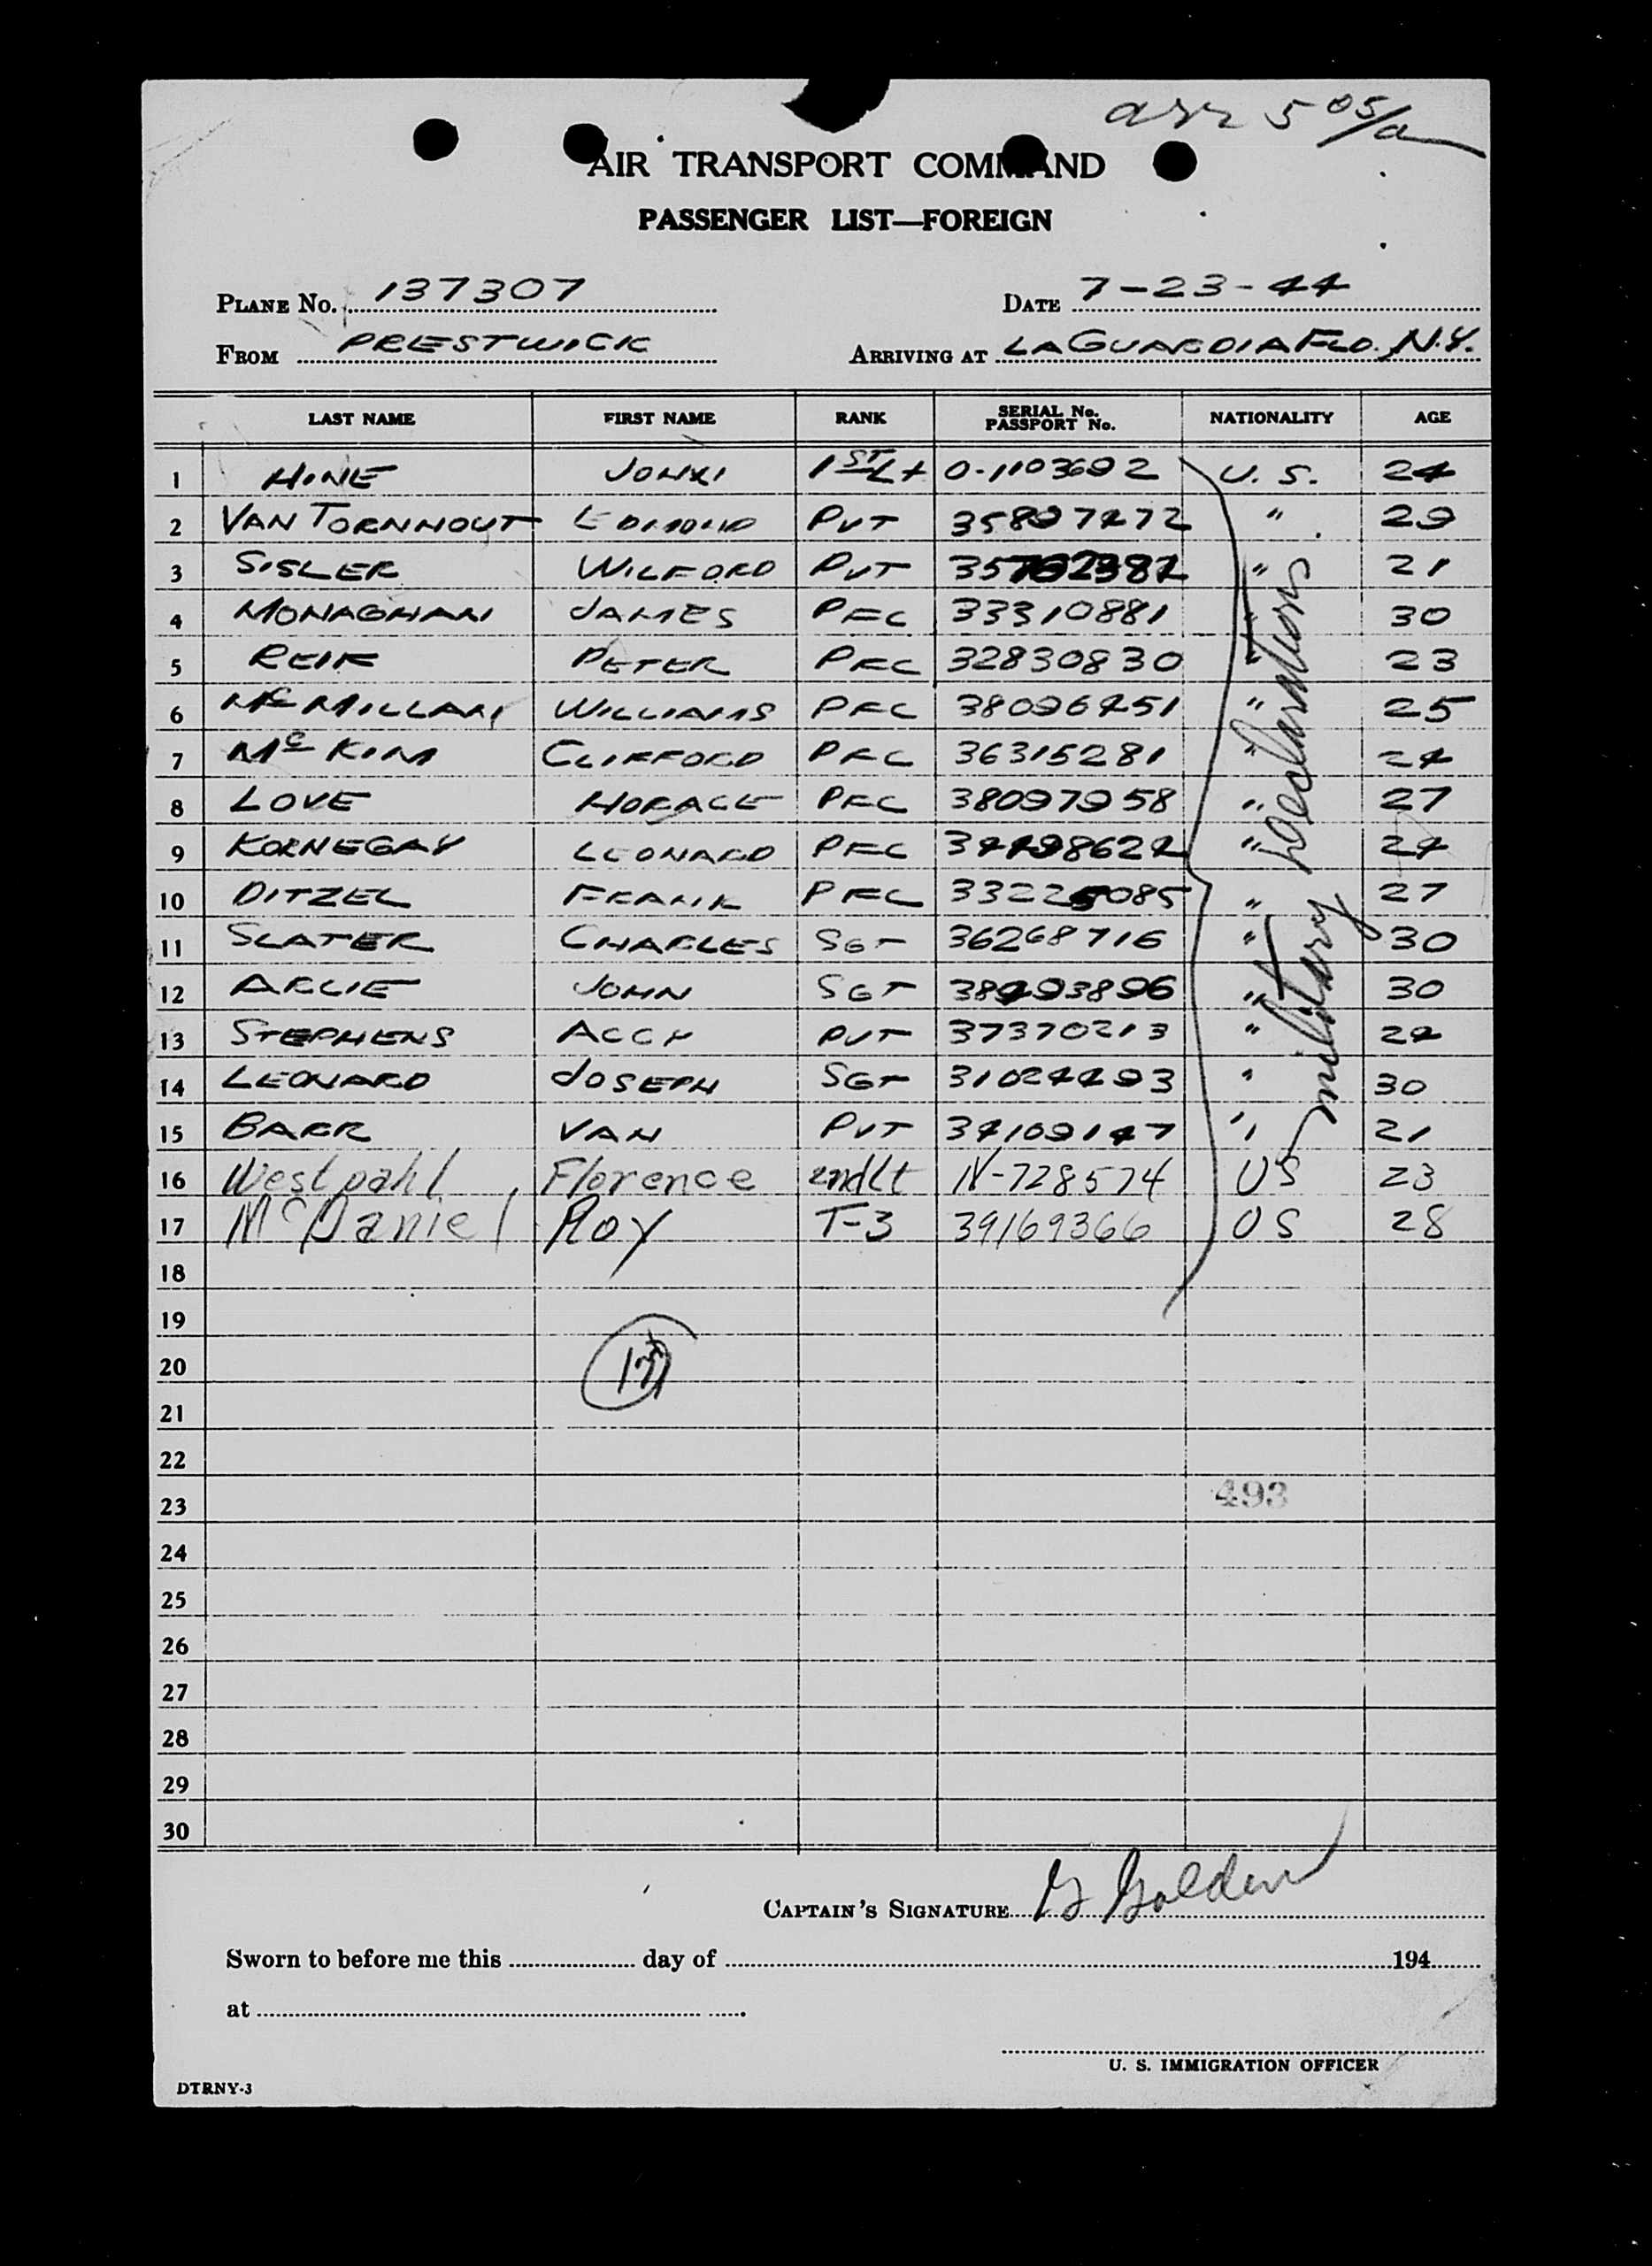 arr 5 05/a
AIR TRANSPORT COMMAND
PASSENGER LIST—FOREIGN
PLANE NO. 137307 DATE 7-23-44
FROM PRESTWICK ARRIVING AT LAGUARDIA FLD. N.Y.
LAST NAME FIRST NAME RANK SERIAL No. PASSPORT No. NATIONALITY AGE
1 HINE JOHN 1ST Lt O-1103692 U. S. 24
2 VAN TORNHOUT EDMOND PVT 35897472 " 29
3 SISLER WILFORD PVT " 21
4 MONAGHAN JAMES PFC 33310881 " 30
5 REIK PETER PFC 32830830 " 23
6 McMILLAN WILLIAMS PFC 38096451 " 25
7 McKIM CLIFFORD PFC 36315281 " 24
8 LOVE HORACE PFC 38097958 " 27
9 KORNEGAY LEONARD PFC 34498624 " 24
10 DITZEL FRANK PFC 33225085 " 27
11 SLATER CHARLES SGT 36268716 " 30
12 ARLIE JOHN SGT 38493896 " 30
13 STEPHENS PVT 37370213 " 24
14 LEONARD JOSEPH SGT 31024493 " 30
15 BARR VAN PVT 34109147 " 21
16 Westpahl Florence 2ndLt N-728574 US 23
17 McDaniel Roy T-3 39169366 US 28
military declarations
18
19
20
17
21
22
23 493
24
25
26
27
28
29
30
CAPTAIN'S SIGNATURE G Golden
Sworn to before me this day of 194
at
U. S. IMMIGRATION OFFICER
DTRNY-3